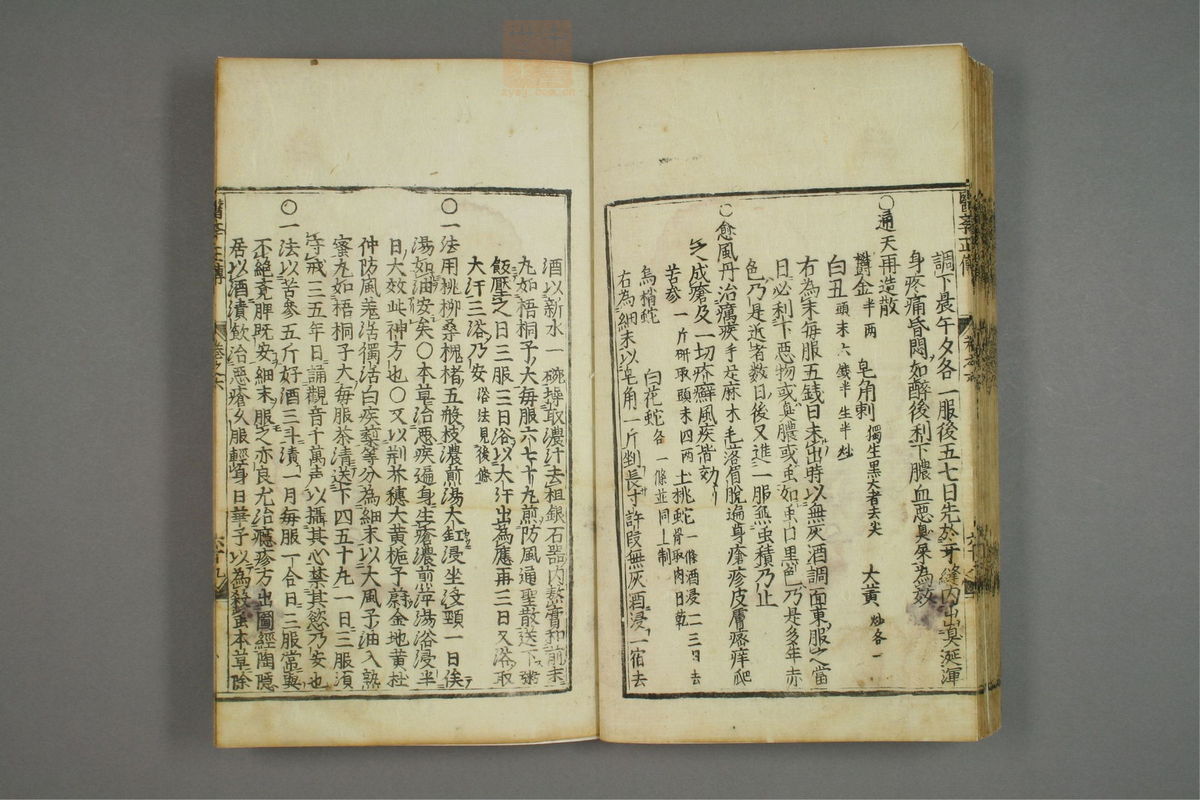 調下長午夕各一服後五七日先於牙縫內出臭涎渾
身疼痛昏悶如醉後利下膿血惡臭屎為效
○通天再造散
欝金半兩 皂角刺獨生黑大者去尖 大黃炒各一
白丑頭末六錢半生半炒
右為末每服五錢日未出時以無灰酒調面東服之當
日必利下惡物或臭膿或虫如虫口黑色乃是多年赤
色乃是近者数日後又進一服無虫積乃止
○愈風丹治癘疾手足麻木毛落眉脫遍身瘡疹皮膚瘙痒爬
之成瘡及一切疥癬風疾皆効
苦參一斤研取頭末四兩 土桃蛇一條酒浸二三日去骨取肉日乾
烏梢蛇 白花蛇各一條並同上制
右為細末以皂角一斤剉長寸許段無灰酒浸一宿去
酒以新水一碗挼取濃汁去粗銀石器內熬膏和前末
丸如梧桐子大每服六七十丸煎防風通聖散送下粥
飯壓之日三服三日浴以大汗出為應再三日又浴取
大汗三浴乃安浴法見後條
○一法用桃柳桑槐楮五般枝濃煎湯大缸浸坐沒頸一日俟
湯如油安矣○本草治惡疾遍身生瘡濃煎萍湯浴浸半
日大效此神方也○又以荊芥穗大黃梔子欝金地黃杜
仲防風羗活獨活白疾藜等分為細末以大風子油入熟
蜜丸如梧桐子大每服茶清送下四五十丸一日三服須
守戒三五年日誦觀音千萬声以攝其心禁其慾乃安也
○一法以苦參五斤好酒三斗漬一月每服一合日三服常與
不絕竟脾既安細末服之亦良尤治癮疹方出圖經陶隱
居以酒漬飲治惡瘡久服輕身日華子以為殺虫本草除